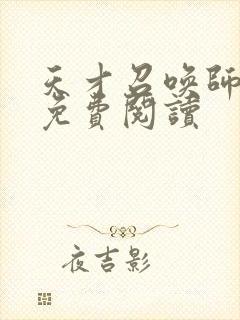 天才召喚師
免費閱讀
夜吉影